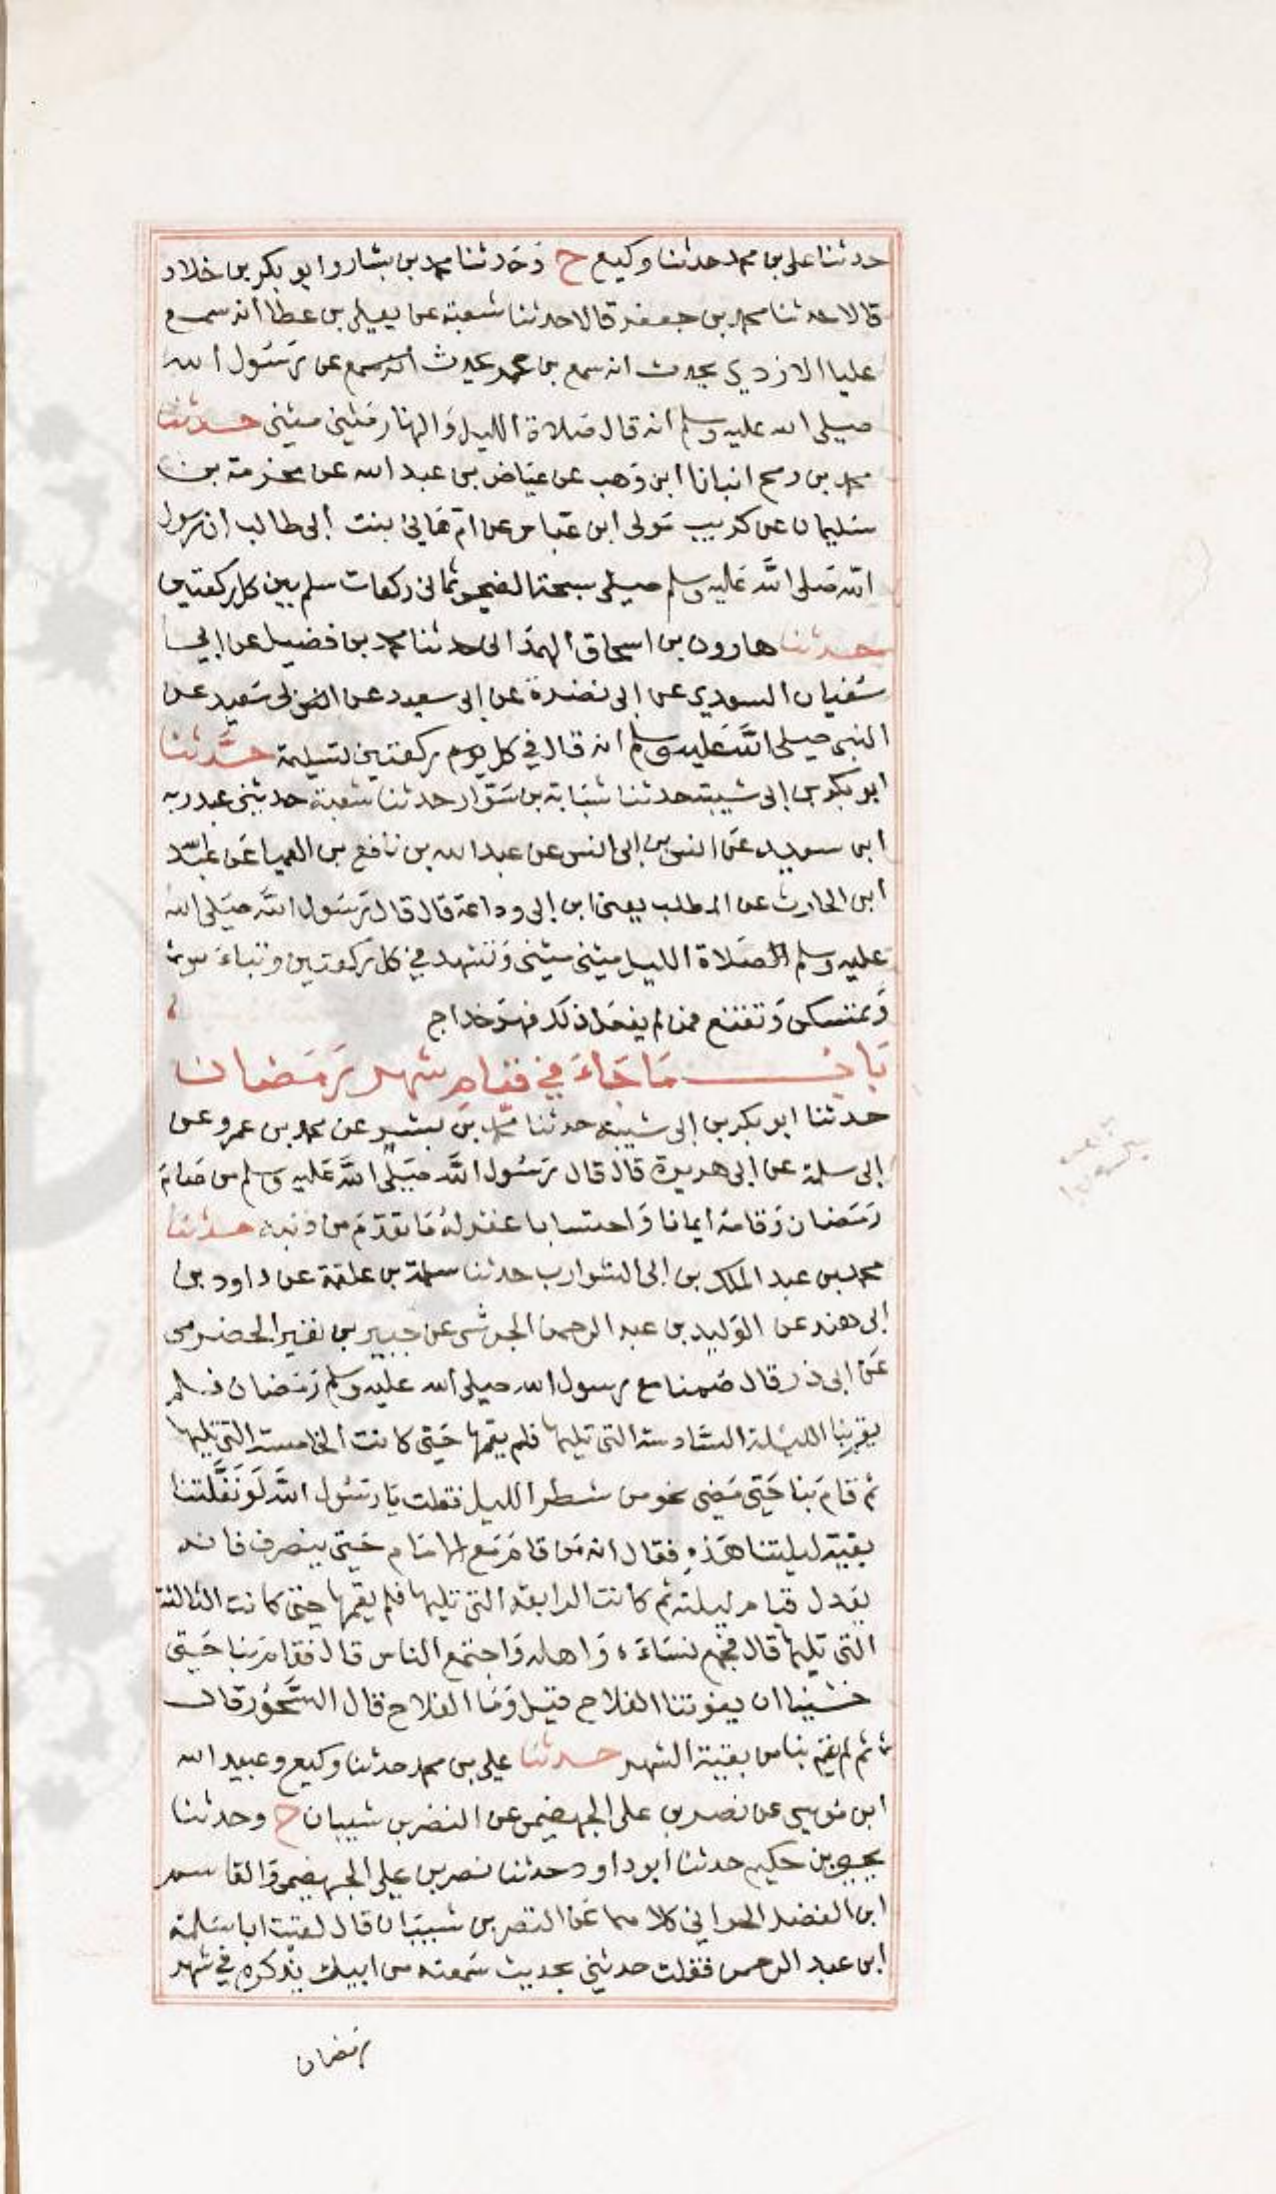 حدثنا علي بن محمد حدثنا وكيع ح وحدثنا محمد بن بشار وابو بكر بن خلاد
قالا حدثنا محمد بن جعفر قالا حدثنا شعبة عن يعلى بن عطا انه سمع
عليا الازدي يحدث انه سمع بن عمر يحدث انه سمع عن رسول الله
صلى الله عليه وسلم انه قال صلاة الليل والنهار مثنى مثنى حدثنا
محمد بن رمح انبانا ابن وهب عن عياض بن عبد الله عن مخرمة بن
سليمان عن كريب مولى ابن عباس عن ام هاني بنت ابي طالب ان رسول
الله صلى الله عليه وسلم صلى سبحة الضحى ثماني ركعات سلم بين كل ركعتين
حدثنا هارون بن اسحاق الهمداني حدثنا محمد بن فضيل عن ابي
سفيان السعدي عن ابي نضرة عن ابي سعيد عن
النبي صلى الله عليه وسلم انه قال في كل يوم ركعتين تسليمة حدثنا
ابو بكر بن ابي شيبة حدثنا شبابة بن سوار حدثنا شعبة حدثني عبد ربه
ابن سعيد عن انس بن ابي انس عن عبد الله بن نافع بن العميا عن عبد الله
ابن الحارث عن المطلب يعني ابن ابي وداعة قال قال رسول الله صلى الله
عليه وسلم الصلاة الليل مثنى مثنى وتشهد في كل ركعتين وتباءس
وتمسكن وتقنع فمن لم يفعل ذلك فهو خداج
باب ما جاء في قيام شهر رمضان
حدثنا ابو بكر بن ابي شيبة حدثنا محمد بن بشير عن محمد بن عمرو عن
ابي سلمة عن ابي هريرة قال قال رسول الله صلى الله عليه وسلم من صام
رمضان وقامه ايمانا واحتسابا غفر له ما تقدم من ذنبه حدثنا
محمد بن عبد الملك بن ابي الشوارب حدثنا سلمة بن علقمة عن داود بن
ابي هند عن الوليد بن عبد الرحمن الجرشي عن جبير بن نفير الحضرمي
عن ابي ذر قال صمنا مع رسول الله صلى الله عليه وسلم رمضان فلم
يقم بنا الليلة السادسة التي تليها فلم يقمها حتى كانت الخامسة التي تليها
ثم قام بنا حتى مضى نحو من شطر الليل فقلت يا رسول الله لو نفلتنا
بقية ليلتنا هذه فقال انه من قام مع الامام حتى ينصرف فانه
يعدل قيام ليلة ثم كانت الرابعة التي تليها فلم يقمها حتى كانت الثالثة
التي تليها قال فجمع نساءه واهله واجتمع الناس قال فقام بنا حتى
خشينا ان يفوتنا الفلاح قيل وما الفلاح قال السحور قال
ثم لم يقم بنا من بقية الشهر حدثنا علي بن محمد حدثنا وكيع وعبيد الله
ابن موسى عن نصر بن علي الجهضمي عن النضر بن شيبان ح وحدثنا
يحيى بن حكيم حدثنا ابو داود حدثنا نصر بن علي الجهضمي والقاسم
ابن الفضل الحداني كلاهما عن النضر بن شيبان قال لقيت ابا سلمة
ابن عبد الرحمن فقلت حدثني بحديث سمعته من ابيك يذكره في شهر
رمضان